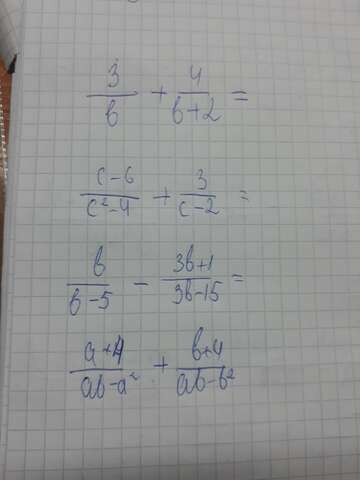 3/b + 4/(b+2) =
(c-6)/(c²-4) + 3/(c-2) =
b/(b-5) - (3b+1)/(3b-15) =
(a+4)/(ab-a²) + (b+4)/(ab-b²)